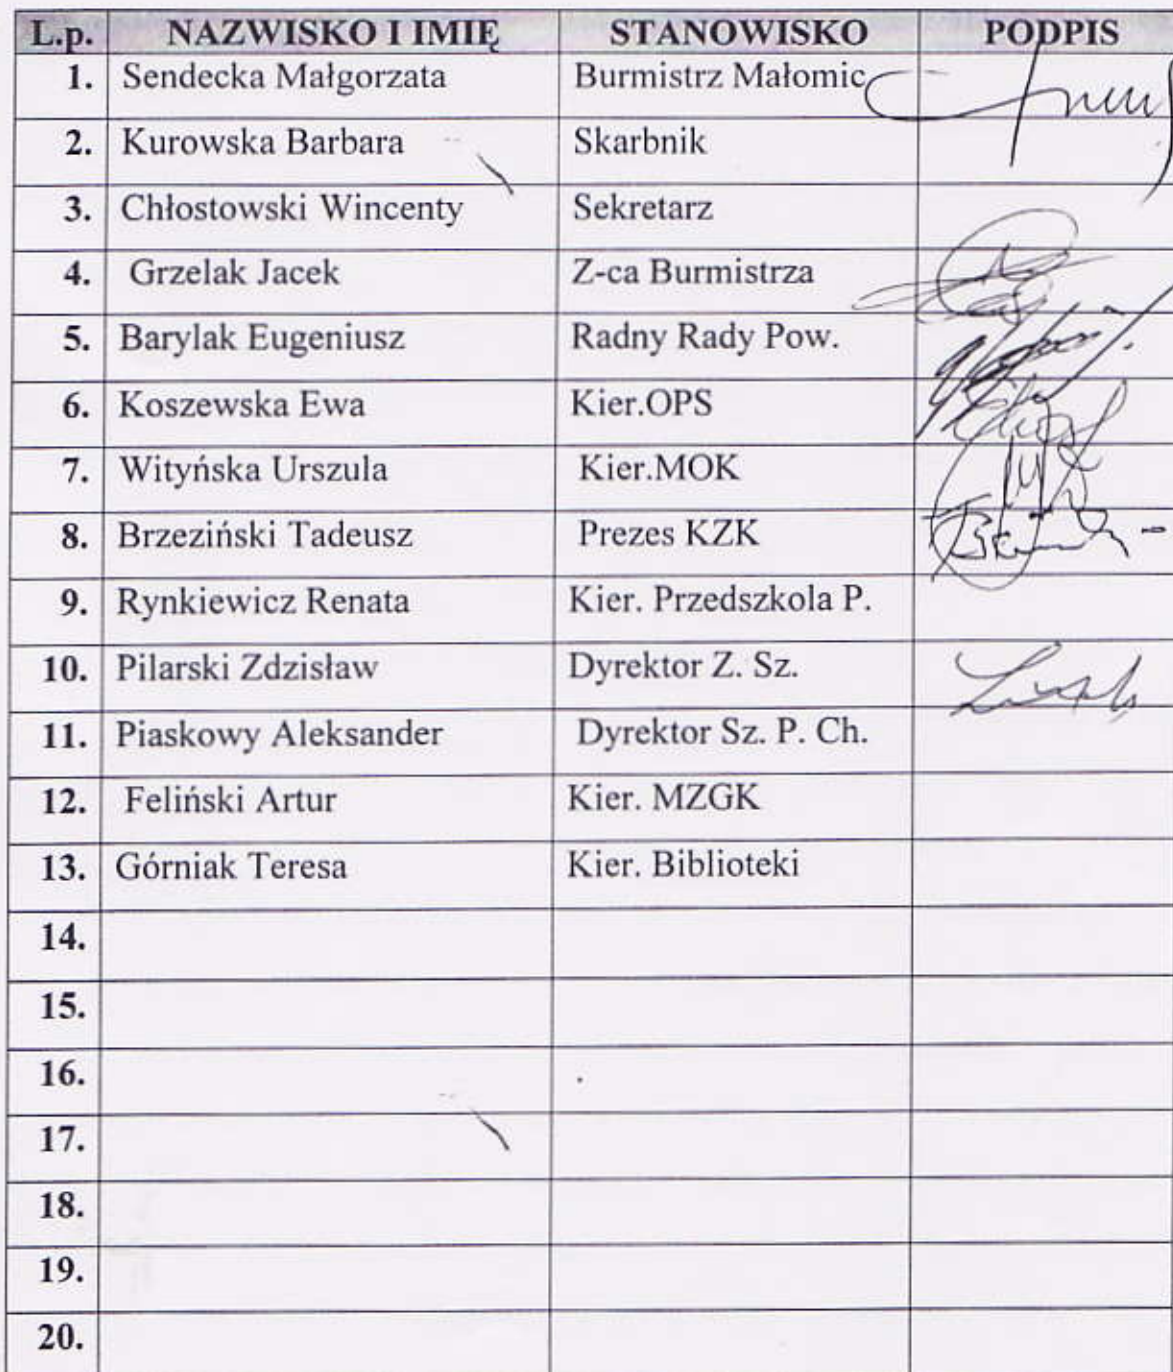 L.p. NAZWISKO I IMIĘ STANOWISKO PODPIS
1. Sendecka Małgorzata Burmistrz Małomic
2. Kurowska Barbara Skarbnik
3. Chłostowski Wincenty Sekretarz
4. Grzelak Jacek Z-ca Burmistrza
5. Barylak Eugeniusz Radny Rady Pow.
6. Koszewska Ewa Kier.OPS
7. Wityńska Urszula Kier.MOK
8. Brzeziński Tadeusz Prezes KZK
9. Rynkiewicz Renata Kier. Przedszkola P.
10. Pilarski Zdzisław Dyrektor Z. Sz.
11. Piaskowy Aleksander Dyrektor Sz. P. Ch.
12. Feliński Artur Kier. MZGK
13. Górniak Teresa Kier. Biblioteki
14.
15.
16.
17.
18.
19.
20.